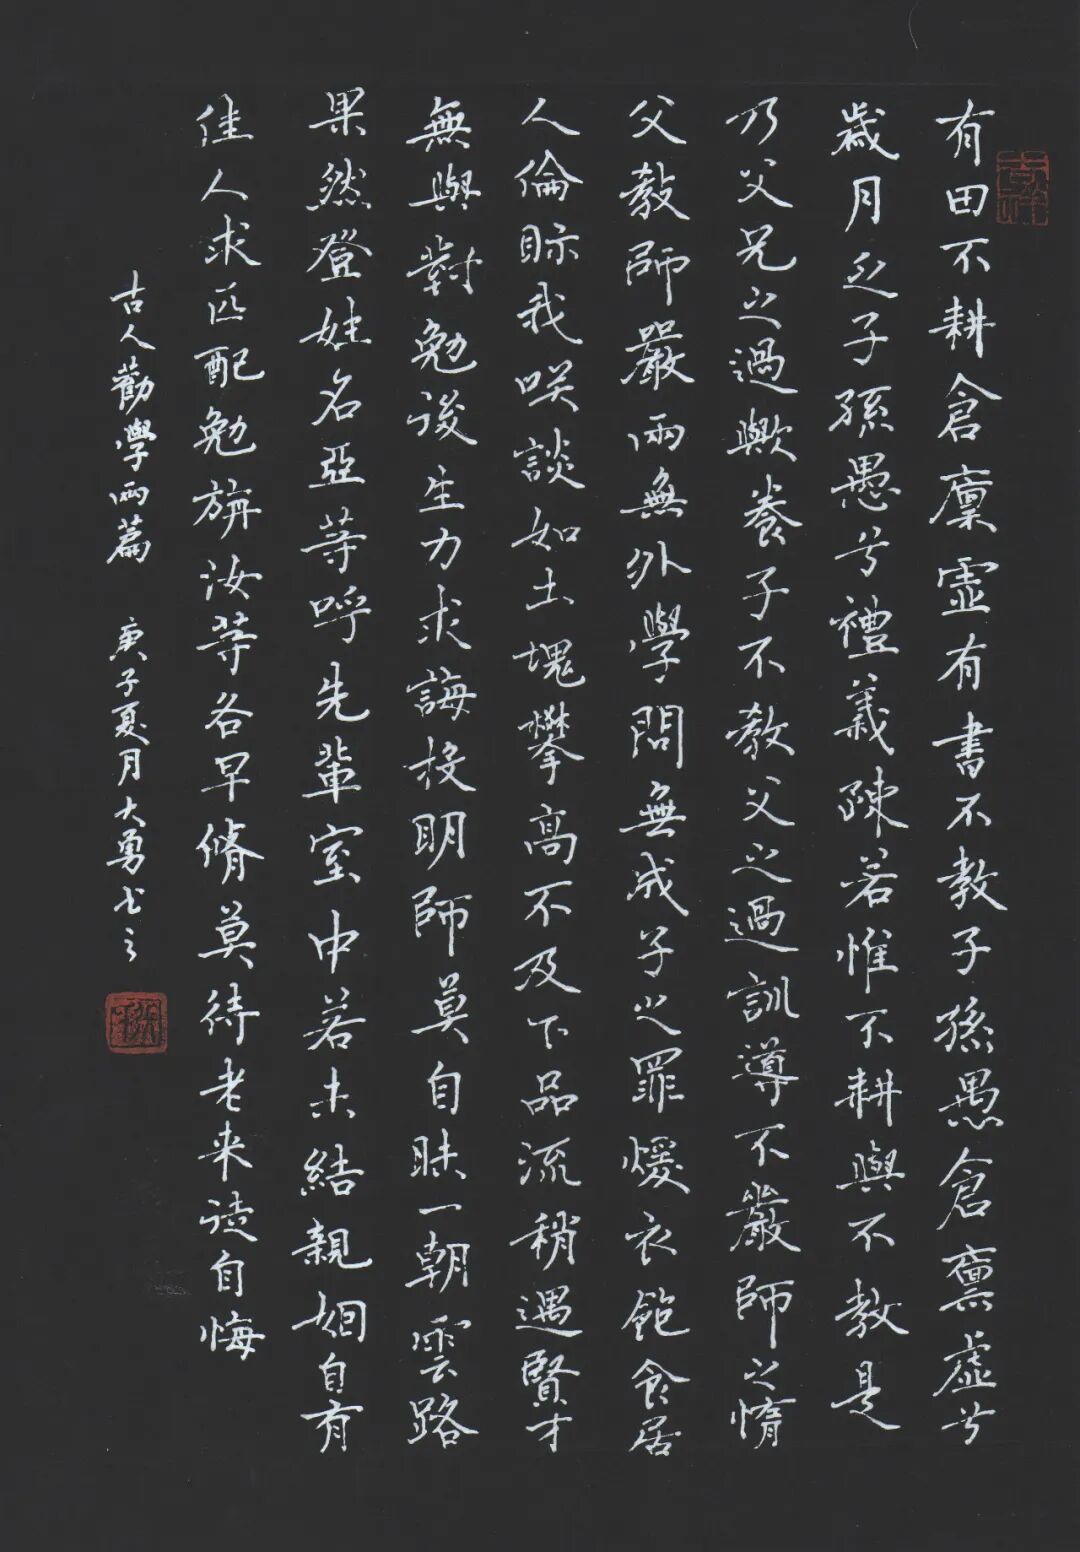 有田不耕倉廩虛有書不教子孫愚倉廩虛兮
歲月乏子孫愚兮禮義疎若惟不耕與不教是
乃父兄之過歟養子不教父之過訓導不嚴師之惰
父教師嚴兩無外學問無成子之罪煖衣飽食居
人倫眎我咲談如土塊攀高不及下品流稍遇賢才
無與對勉後生力求誨投明師莫自昧一朝雲路
果然登姓名亞等呼先輩室中若未結親姻自有
佳人求匹配勉旃汝等各早脩莫待老来徒自悔
古人勸學兩篇 庚子夏月大勇书之